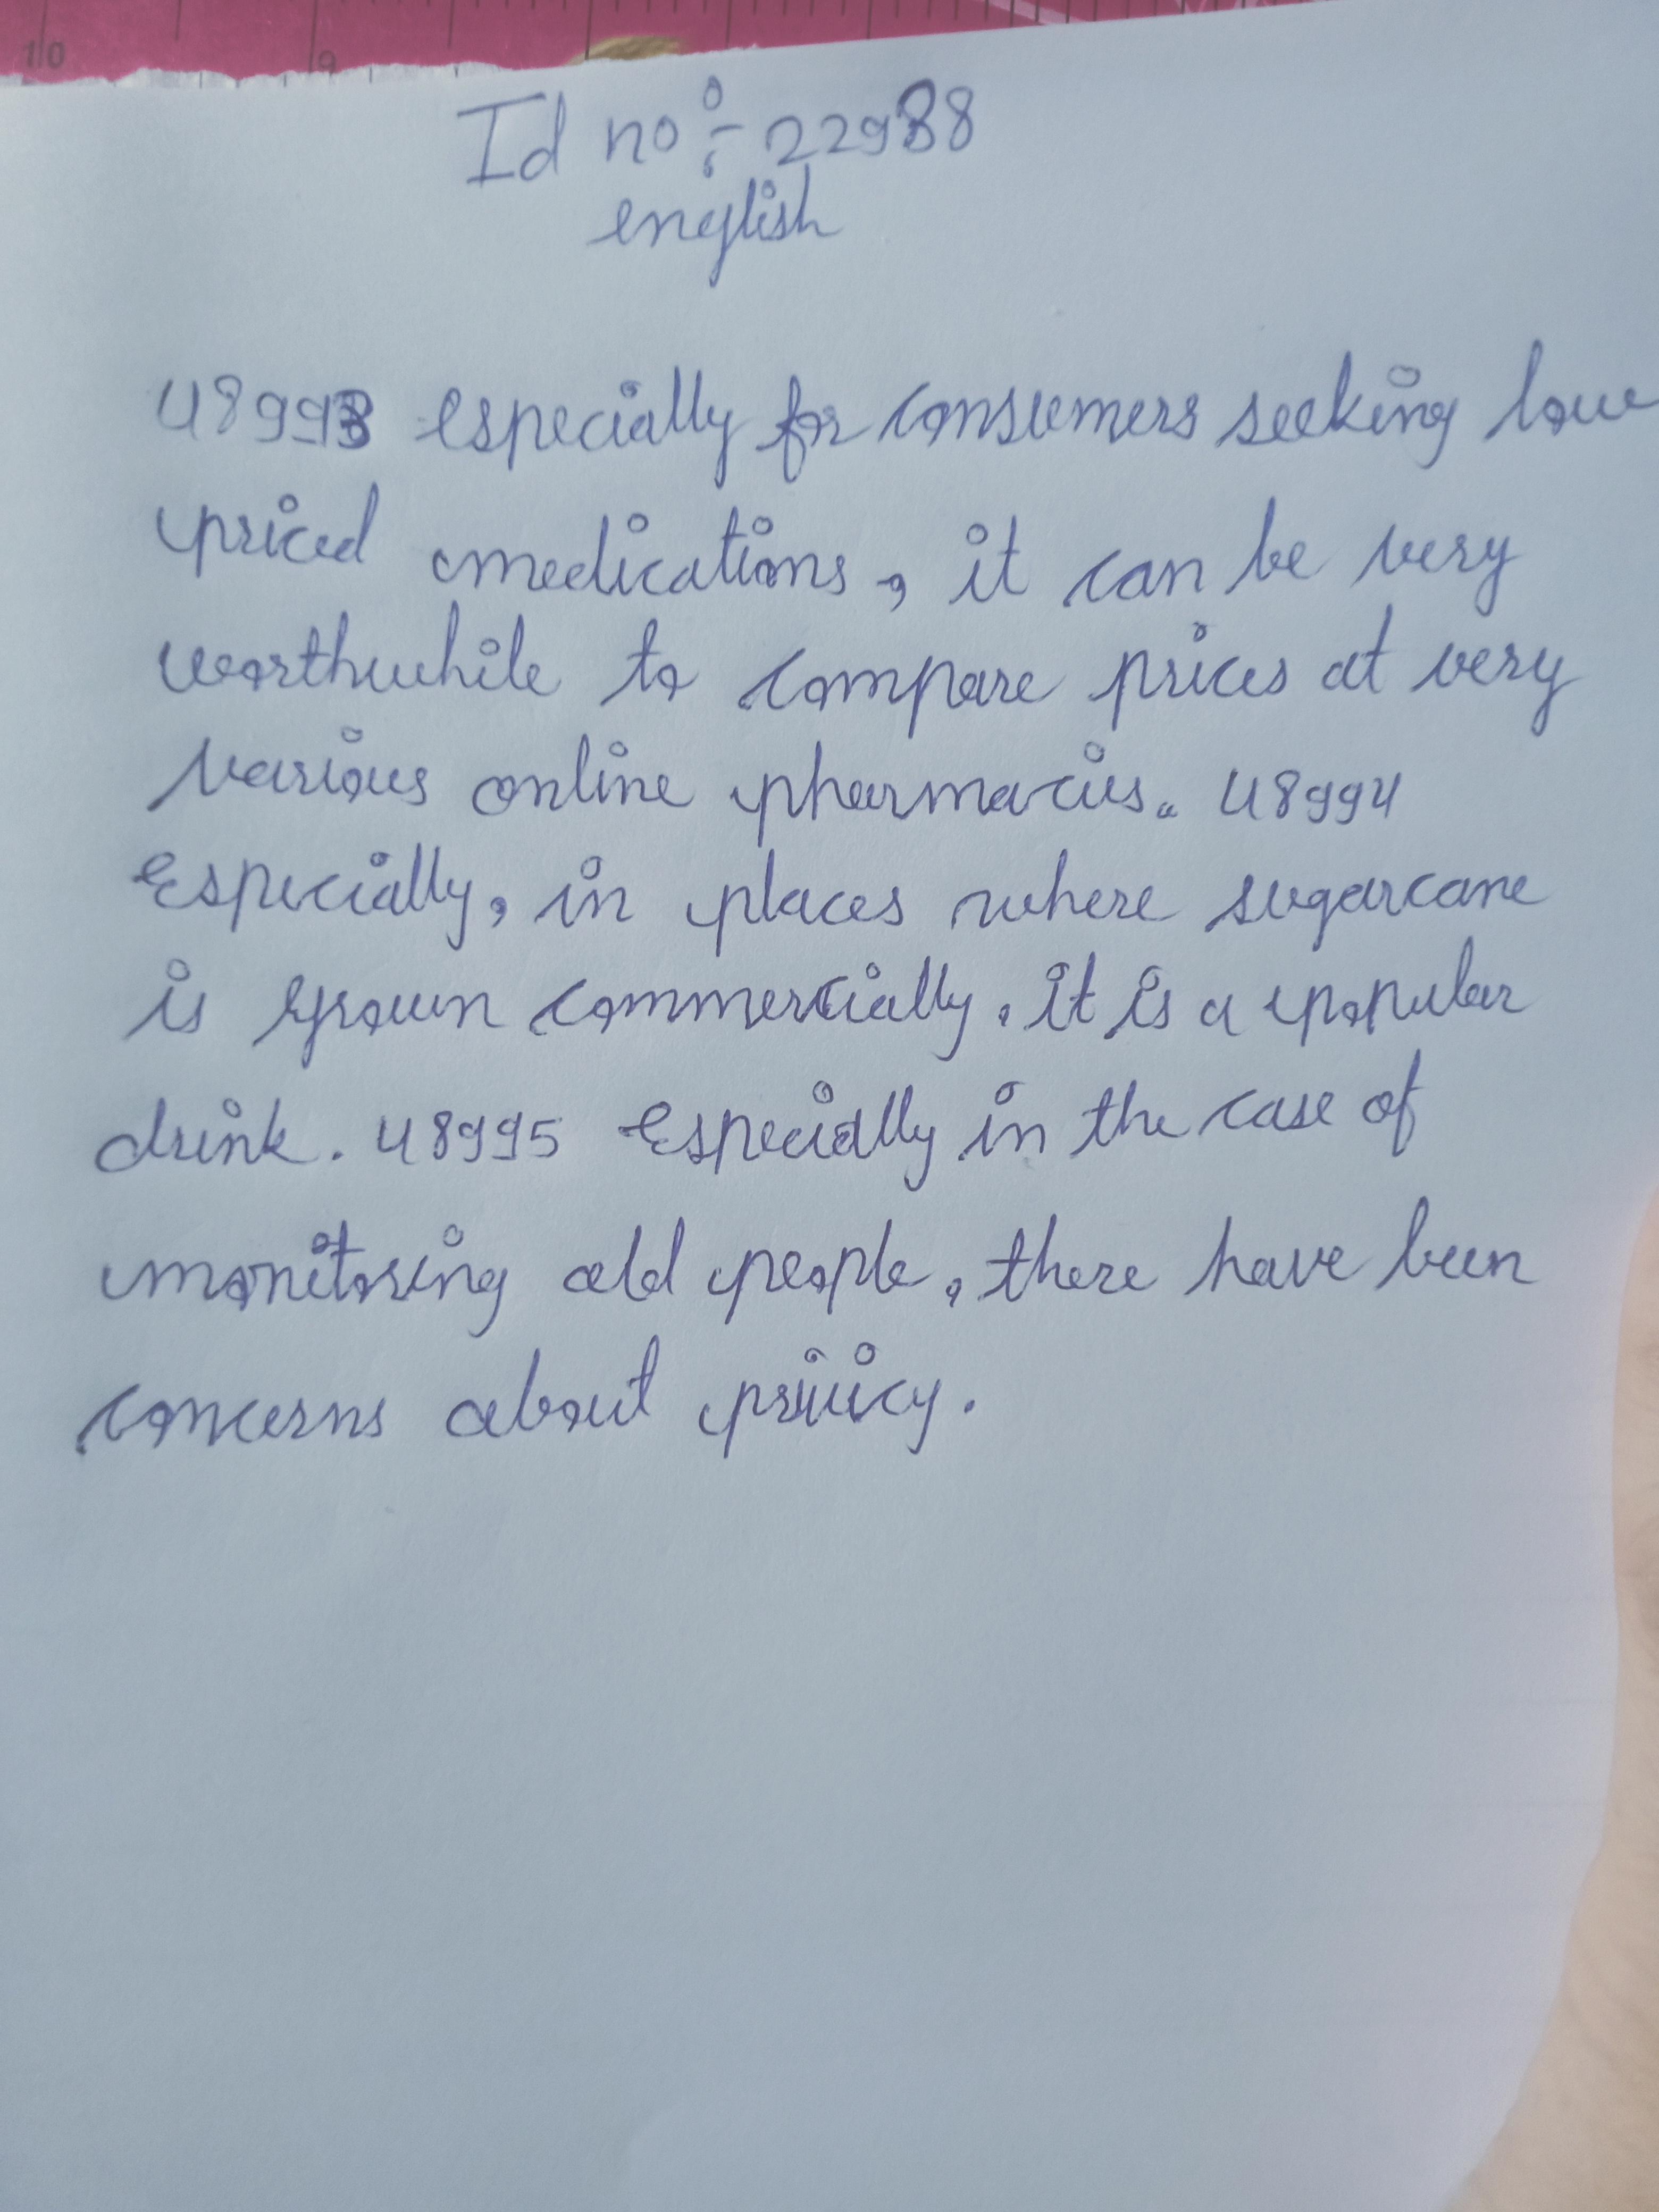 10 9
Id no :- 22988
english
48993 especially for consumers seeking low
priced medications, it can be very
worthwhile to compare prices at very
various online pharmacies. 48994
Especially, in places where sugarcane
is grown commercially, it is a popular
drink. 48995 Especially in the case of
monitoring old people, there have been
concerns about privicy.